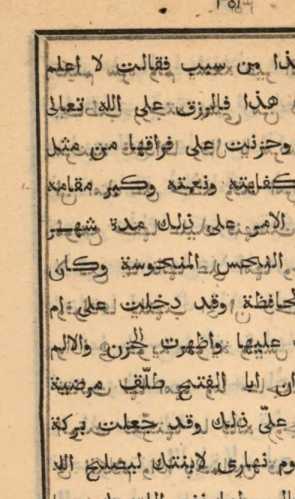 هذا من سبب فقالت لا اعلم
هذا فالرزق على الله تعالى
وحزنت على فراقها من مثد
كفايته ونعمته وكبر مقامه
الامر على ذلك مدة شهر
النحس المنحوسة وكان
لحافظة وقد دخلت على ام
عليها واظهرت الحزن والالم
ان ابا الفتح طلّق مرضية
علىّ ذلك وقد جعلت بركة
وم نهارى لابنتك ليصلح الله